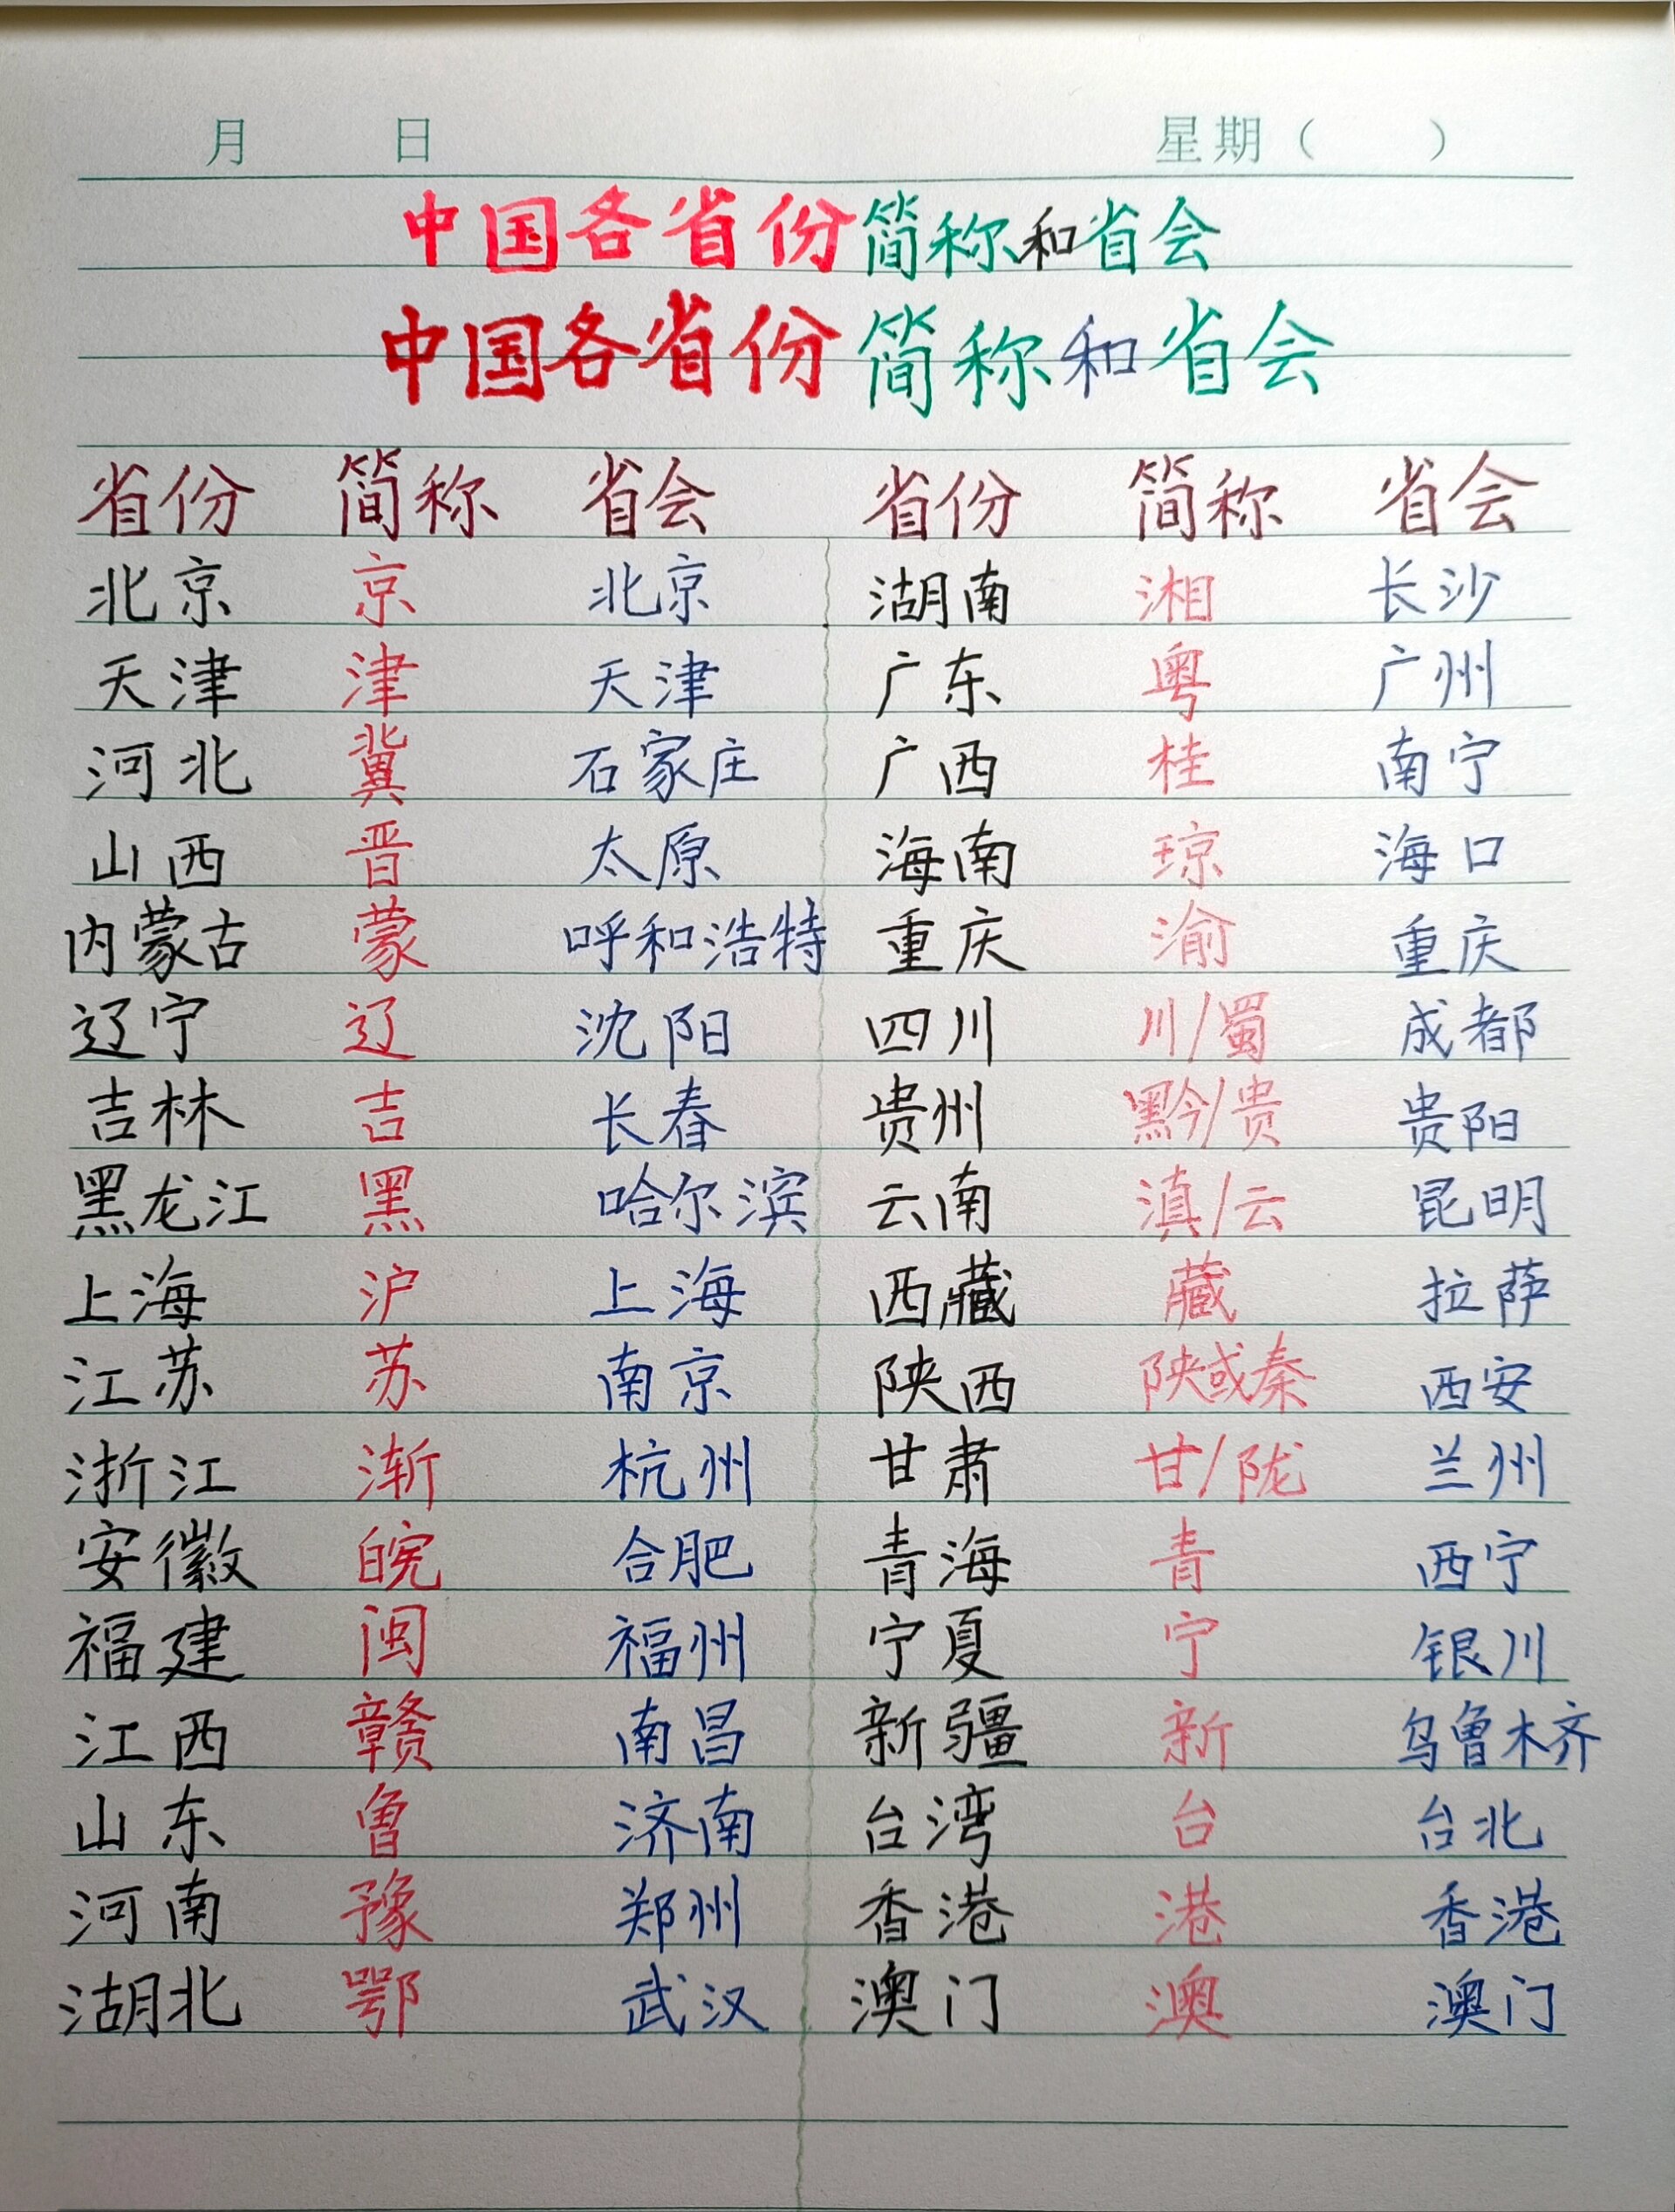 月 日 星期（ ）
中国各省份简称和省会
中国各省份简称和省会
省份 简称 省会 省份 简称 省会
北京 京 北京 湖南 湘 长沙
天津 津 天津 广东 粤 广州
河北 冀 石家庄 广西 桂 南宁
山西 晋 太原 海南 琼 海口
内蒙古 蒙 呼和浩特 重庆 渝 重庆
辽宁 辽 沈阳 四川 川/蜀 成都
吉林 吉 长春 贵州 黔/贵 贵阳
黑龙江 黑 哈尔滨 云南 滇/云 昆明
上海 沪 上海 西藏 藏 拉萨
江苏 苏 南京 陕西 陕或秦 西安
浙江 渐 杭州 甘肃 甘/陇 兰州
安徽 皖 合肥 青海 青 西宁
福建 闽 福州 宁夏 宁 银川
江西 赣 南昌 新疆 新 乌鲁木齐
山东 鲁 济南 台湾 台 台北
河南 豫 郑州 香港 港 香港
湖北 鄂 武汉 澳门 澳 澳门